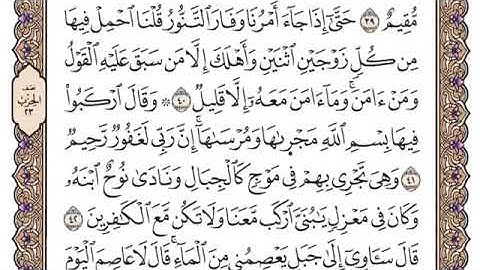 مُّقِيمٌ ٣٩ حَتَّىٰٓ إِذَا جَآءَ أَمْرُنَا وَفَارَ ٱلتَّنُّورُ قُلْنَا ٱحْمِلْ فِيهَا
مِن كُلٍّ زَوْجَيْنِ ٱثْنَيْنِ وَأَهْلَكَ إِلَّا مَن سَبَقَ عَلَيْهِ ٱلْقَوْلُ
وَمَنْ ءَامَنَۚ وَمَآ ءَامَنَ مَعَهُۥٓ إِلَّا قَلِيلٌ ٤٠ ۞ وَقَالَ ٱرْكَبُوا۟
فِيهَا بِسْمِ ٱللَّهِ مَجْر۪ىٰهَا وَمُرْسَىٰهَآۚ إِنَّ رَبِّى لَغَفُورٌ رَّحِيمٌ
٤١ وَهِىَ تَجْرِى بِهِمْ فِى مَوْجٍ كَٱلْجِبَالِ وَنَادَىٰ نُوحٌ ٱبْنَهُۥ
وَكَانَ فِى مَعْزِلٍ يَـٰبُنَىَّ ٱرْكَب مَّعَنَا وَلَا تَكُن مَّعَ ٱلْكَـٰفِرِينَ ٤٢
قَالَ سَـَٔاوِىٓ إِلَىٰ جَبَلٍ يَعْصِمُنِى مِنَ ٱلْمَآءِۚ قَالَ لَا عَاصِمَ ٱلْيَوْمَ
الحِزْب
٢٣